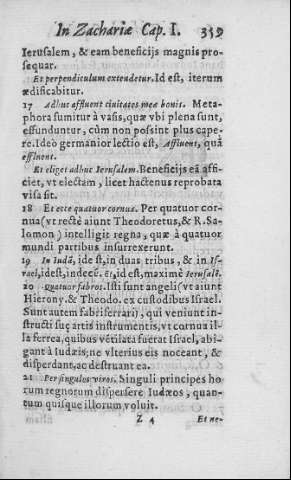 In Zachariæ Cap. I. 359
Ierusalem, & eam beneficijs magnis pro-
sequar.
Et perpendiculum extendetur. Id est, iterum
ædificabitur.
17 Adhuc affluent ciuitates meæ bonis. Meta-
phora sumitur à vasis, quæ vbi plena sunt,
effunduntur, cùm non possint plus cape-
re. Ideò germanior lectio est, Affluent, quâ
effluent.
Et eliget adhuc Ierusalem. Beneficijs eã affi-
ciet, vt electam, licet hactenus reprobata
visa sit.
18 Et ecce quatuor cornua. Per quatuor cor-
nua (vt rectè aiunt Theodoretus, & R. Sa-
lomon) intelligit regna, quæ à quatuor
mundi partibus insurrexerunt.
19 In Iudã, id est, in duas tribus, & in Is-
rael, id est, in decē. &, id est, maximè Ierusalē.
20 Quatuor fabros. Isti sunt angeli (vt aiunt
Hierony. & Theodo. ex custodibus Israel.
Sunt autem fabri ferrarij, qui veniunt in-
structi suę artis instrumentis, vt cornua il-
la ferrea, quibus vētilata fuerat Israel, abi-
gant à Iudæis; ne vlterius eis noceant, &
disperdant, ac destruant ea.
21 Per singulos viros. Singuli principes ho-
rum regnorum dispersere Iudæos, quan-
tum quisque illorum voluit.
Z 4 Et ne-